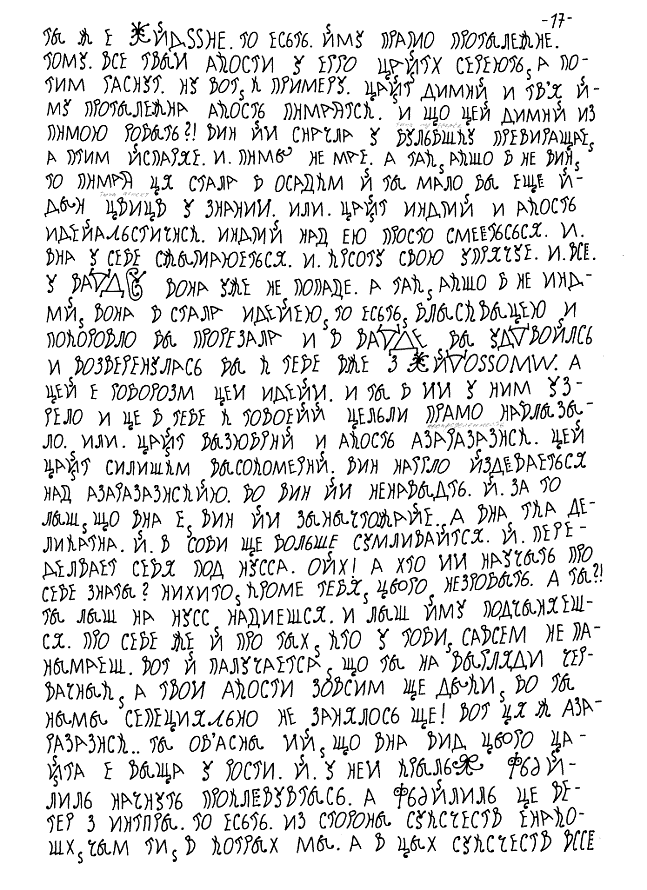 -17-
ТЫ Ж Е ЙДЅЅНЕ. ТО ЕСЬТЬ. ЙМУ ПРАМО ПРОТЫЛЕЖНЕ.
ТОМУ. ВСЕ ТВЫИ АКОСТИ У ЕГГО ЦАЙТХ СЕРЕЮТЬ, А ПО-
ТИМ ГАСНУТ. НУ ВОТ, К ПРИМЕРУ. ЦАЙТ ДИМНИЙ И ТВ'Я Й-
МУ ПРОТЫЛЕЖНА АКОСТЬ ПНМРАТСК. И ЩО ЦЕЙ ДИМНИЙ ИЗ
ПНМОЮ РОВЫТЬ?! ВИН ЙИ СНАЧЛА У БУЛЬВШКУ ПРЕВИРАЩАЕ,
А ПТИМ ЙСПАРЯЕ. И. ПНМЫ НЕ МРЕ. А ТАК, АКШО В НЕ ВИН,
ТО ПНМРА ЦЯ СТАЛА В ОСАДКМ Й ТЫ МАЛО ВЫ ЕЩЕ Й-
ДЫН ЦВИЦВ У ЗНАНИИ. ИЛИ. ЦАЙТ ИНДМИЙ И АКОСТЬ
ИДЕЙАЛЬСТИЧНСК. ИНДМИЙ НАД ЕЮ ПРОСТО СМЕЕТЬСЬСЯ. И.
ВНА У СЕБЕ СЖЫМАЮЕТЬСЯ. И. КРСОТУ СВОЮ УПРЯЧУЕ. И. ВСЕ.
У ВОНА УЖЕ НЕ ПОПАДЕ. А ТАК, АКШО В НЕ ИНД-
МИЙ, ВОНА В СТАЛА ИДЕЙЕЮ, ТО ЕСЬТЬ, ВЛЫСКВЫЦЕЮ И
ПОКОРОВЛО ВЫ ПРОРЕЗАЛА И В ВЫ УДВОЙЛСЬ
И ВОЗВЕРЕНУЛАСЬ ВЫ К ТЕБЕ ВЖЕ З А
ЦЕЙ Е РОВОРОЗМ ЦЕИ ИДЕЙИ. И ТЫ В ИИ У НИМ УЗ-
РЕЛО И ЦЕ В ТЕБЕ К ТОВОЕЙЙ ЦЕЛЬЛИ ПРАМО НАВЛЫЗЫ-
ЛО. ИЛИ. ЦАЙТ ВЫЗЮВРНЙ И АКОСТЬ АЗАРАЗАЗНСК. ЦЕЙ
ЦАЙТ СИЛИШКМ ВЫСОКОМЕРНЙ. ВИН НАГГЛО ЙЗДЕВАЕТЬСЯ
НАД АЗАРАЗАЗНСКЙЮ. ВО ВИН ЙИ НЕНАВЫДТЬ. Й. ЗА ТО
ЛЫШ, ЩО ВНА Е, ВИН ЙИ ЗЫНЫЧТОЖАЙЕ. А ВНА ТКА ДЕ-
ЛИКАТНА. Й. В СОВИ ЩЕ ВОЛЬШЕ СУМЛИВАЙТСЯ. Й. ПЕРЕ-
ДЕЛВАЕТ СЕВЯ ПОД НУССА. ОЙХ! А ХТО ИИ НАУЧЫТЬ ПРО
СЕБЕ ЗНАТЫ? НИХИТО, КРОМЕ ТЕВЯ, ЦЬОГО, НЕЗРОВЫТЬ. А ТЫ?!
ТЫ ЛЫШ НА НУСС НАДИЕШСЯ. И ЛЫШ ЙМУ ПОДЧЫНЯЕШ-
СЯ. ПРО СЕБЕ ЖЕ Й ПРО ТЫХ, КТО У ТОВИ, САВСЕМ НЕ ПА-
НЫМРЕШ. ВОТ Й ПАЛУЧАЕТСА, ЩО ТЫ НА ВЫГЛЯДИ ЧЕР-
ВАЧНЫК, А ТВОИ АКОСТИ ЗОВСИМ ЩЕ ДЫКИ, ВО ТЫ
НЫМЫ СЕПЕЦИЯЛЬНО НЕ ЗАНЯЛОСЬ ЩЕ! ВОТ ЦЯ Ж АЗА-
РАЗАЗНСК.. ТЫ ОВ'АСНЫ ИЙ, ЩО ВНА ВИД ЦЬОГО ЦА-
ЙТА Е ВЫЩА У РОСТИ. Й. Й. У НЕИ ФЬДЙ-
ЛИЛЬ НАЧНУТЬ ПРОКЛЕВУВТЫСЬ. А ФЬДЙЛИЛЬ ЦЕ ВЕ-
ТЕР З ИНТПРЫ. ТО ЕСЬТЬ. ИЗ СТОРОНЫ СУКСЧЕСТВ ЕНАКО-
ШХ, ЧЫМ ТИ, В КОТРЫХ МЫ. А В ЦЫХ СУКСЧЕСТВ ВСЕЕ